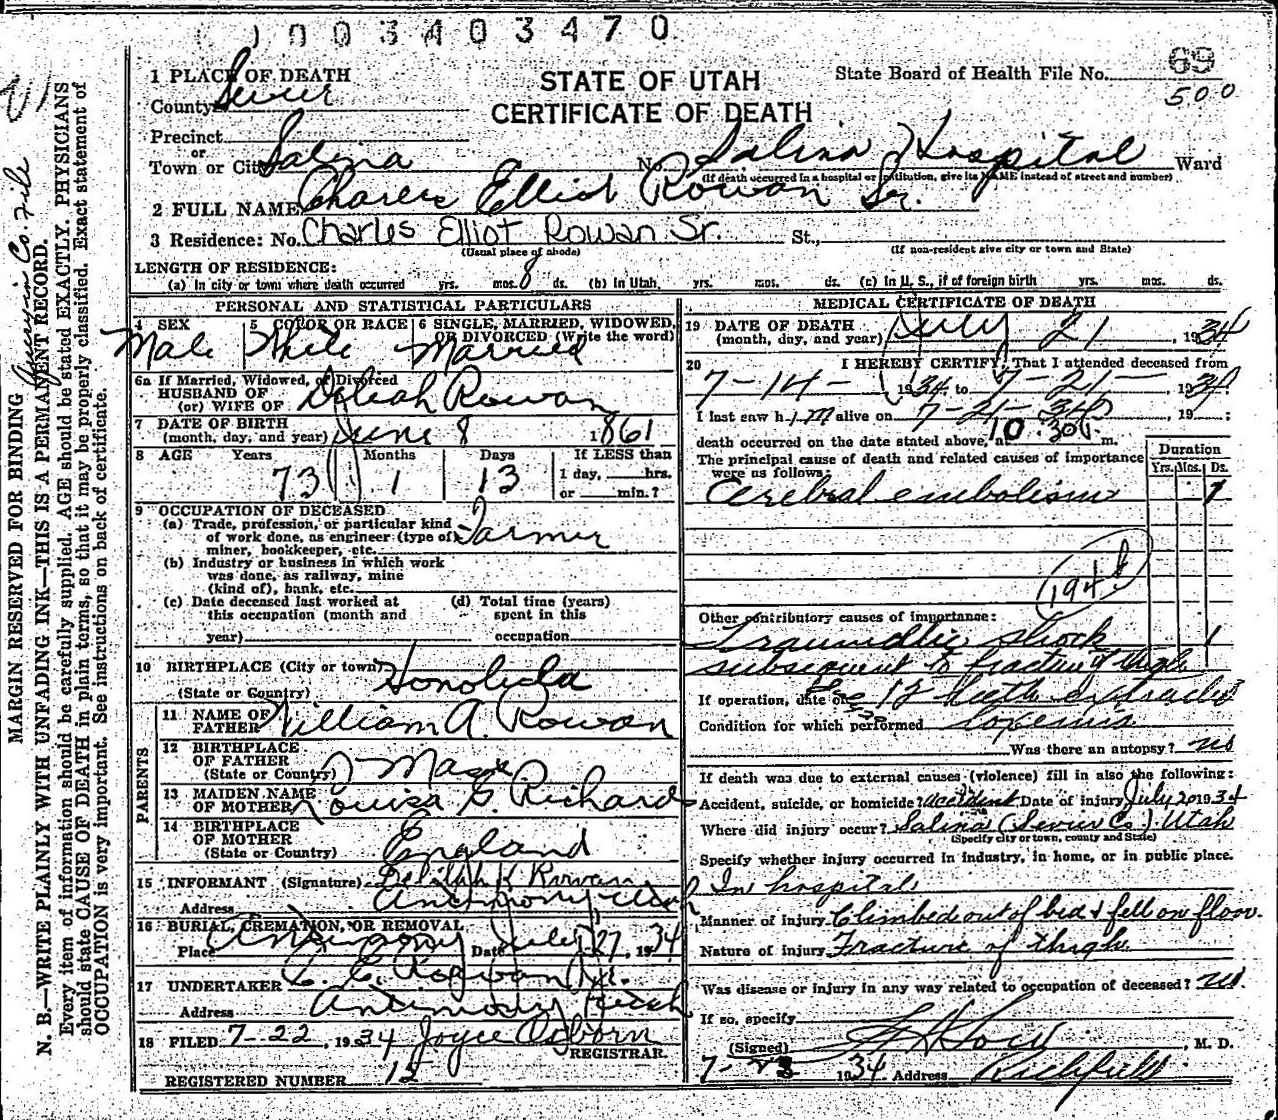 1003403470
MARGIN RESERVED FOR BINDING
N. B.—WRITE PLAINLY WITH UNFADING INK—THIS IS A PERMANENT RECORD.
Every item of information should be carefully supplied. AGE should be stated EXACTLY. PHYSICIANS
should state CAUSE OF DEATH in plain terms, so that it may be properly classified. Exact statement of
OCCUPATION is very important. See instructions on back of certificate.
STATE OF UTAH
CERTIFICATE OF DEATH
State Board of Health File No. 69
500
1 PLACE OF DEATH
County Sevier
Precinct
or
Town or City Salina No. Salina Hospital Ward
(If death occurred in a hospital or institution, give its NAME instead of street and number)
2 FULL NAME Charles Elliot Rowan Sr.
3 Residence: No. Charles Elliot Rowan Sr. St.,
(Usual place of abode) (If non-resident give city or town and State)
LENGTH OF RESIDENCE:
(a) In city or town where death occurred yrs. mos. 8 ds. (b) In Utah, yrs. mos. ds. (c) In U. S., if of foreign birth yrs. mos. ds.
PERSONAL AND STATISTICAL PARTICULARS
4 SEX Male
5 COLOR OR RACE White
6 SINGLE, MARRIED, WIDOWED, OR DIVORCED (Write the word) Married
6a If Married, Widowed, or Divorced
HUSBAND OF
(or) WIFE OF Delilah Rowan
7 DATE OF BIRTH
(month, day, and year) June 8 1861
8 AGE Years Months Days If LESS than
73 1 13 1 day, hrs.
or min.?
9 OCCUPATION OF DECEASED
(a) Trade, profession, or particular kind
of work done, as engineer (type of Farmer
miner, bookkeeper, etc.
(b) Industry or business in which work
was done, as railway, mine
(kind of), bank, etc.
(c) Date deceased last worked at
this occupation (month and
year)
(d) Total time (years)
spent in this
occupation
10 BIRTHPLACE (City or town) Honolulu
(State or Country)
PARENTS
11 NAME OF
FATHER William A. Rowan
12 BIRTHPLACE
OF FATHER
(State or Country) Mass.
13 MAIDEN NAME
OF MOTHER Louisa G. Richards
14 BIRTHPLACE
OF MOTHER
(State or Country) England
15 INFORMANT (Signature) Delilah K Rowan
Address Antimony, Utah
16 BURIAL, CREMATION, OR REMOVAL
Place Antimony Date July 27, 1934
17 UNDERTAKER C. E. Rowan Jr.
Address Antimony Utah
18 FILED 7-22, 1934 Joyce Ogborn
REGISTRAR.
REGISTERED NUMBER 15
MEDICAL CERTIFICATE OF DEATH
19 DATE OF DEATH
(month, day, and year) July 21, 1934
20 I HEREBY CERTIFY, That I attended deceased from
7-14- 1934 to 7-21- 1934
I last saw him alive on 7-21-34, 19 ;
death occurred on the date stated above, at 10:30 m.
The principal cause of death and related causes of importance
were as follows:
Duration
Yrs. Mos. Ds.
Cerebral embolism 1
194
Other contributory causes of importance:
Traumatic shock 1
subsequent to fracture of thigh
If operation, date of 12 teeth extracted
Condition for which performed toxemia
Was there an autopsy? no
If death was due to external causes (violence) fill in also the following:
Accident, suicide, or homicide? accident Date of injury July 20 1934
Where did injury occur? Salina (Sevier Co.) Utah
(Specify city or town, county and State)
Specify whether injury occurred in industry, in home, or in public place.
In hospital
Manner of injury Climbed out of bed & fell on floor.
Nature of injury Fracture of thigh
Was disease or injury in any way related to occupation of deceased? no.
If so, specify
(Signed) , M. D.
7-23 1934 Address Richfield